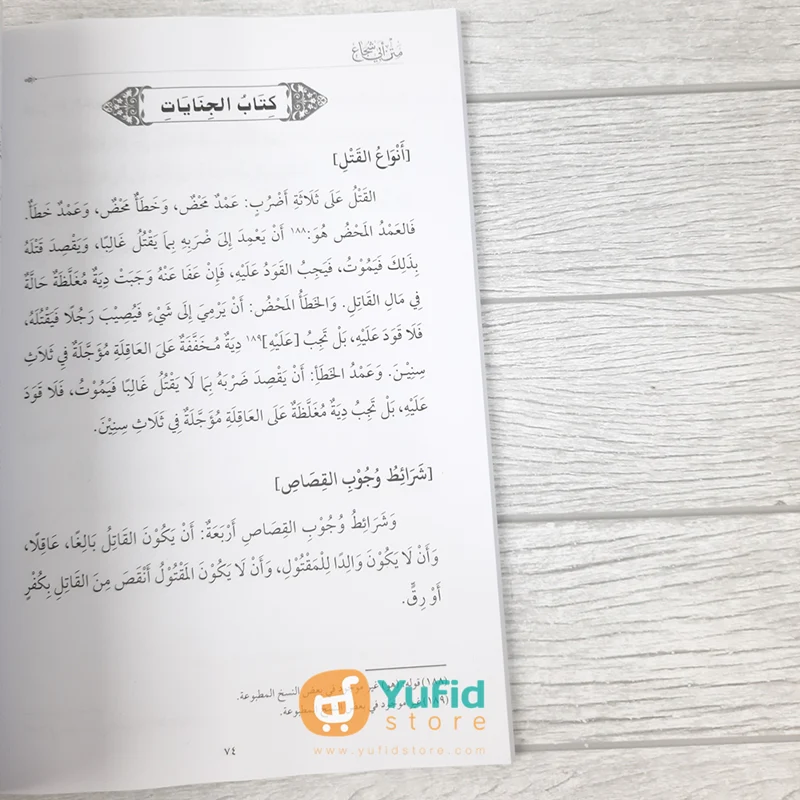 مَتْنُ أَبِي شُجَاعٍ
كِتَابُ الجِنَايَاتِ
[أَنْوَاعُ القَتْلِ]
القَتْلُ عَلَى ثَلَاثَةِ أَضْرُبٍ: عَمْدٌ مَحْضٌ، وَخَطَأٌ مَحْضٌ، وَعَمْدٌ خَطَأٌ.
فَالعَمْدُ المَحْضُ هُوَ:١٨٨ أَنْ يَعْمِدَ إِلىَ ضَرْبِهِ بِمَا يَقْتُلُ غَالِبًا، وَيَقْصِدَ قَتْلَهُ
بِذَلِكَ فَيَمُوْتُ، فَيَجِبُ القَوَدُ عَلَيْهِ، فَإِنْ عَفَا عَنْهُ وَجَبَتْ دِيَةٌ مُغَلَّظَةٌ حَالَّةٌ
فِي مَالِ القَاتِلِ. وَالخَطَأُ المَحْضُ: أَنْ يَرْمِيَ إِلَى شَيْءٍ فَيُصِيْبَ رَجُلًا فَيَقْتُلَهُ،
فَلَا قَوَدَ عَلَيْهِ، بَلْ تَجِبُ [عَلَيْهِ]١٨٩ دِيَةٌ مُخَفَّفَةٌ عَلىَ العَاقِلَةِ مُؤَجَّلَةٌ فِي ثَلَاثِ
سِنِيْنَ. وَعَمْدُ الخَطَأِ: أَنْ يَقْصِدَ ضَرْبَهُ بِمَا لَا يَقْتُلُ غَالِبًا فَيَمُوْتُ، فَلَا قَوَدَ
عَلَيْهِ، بَلْ تَجِبُ دِيَةٌ مُغَلَّظَةٌ عَلَى العَاقِلَةِ مُؤَجَّلَةٌ فِي ثَلَاثِ سِنِيْنَ.
[شَرَائِطُ وُجُوْبِ القِصَاصِ]
وَشَرَائِطُ وُجُوْبِ القِصَاصِ أَرْبَعَةٌ: أَنْ يَكُوْنَ القَاتِلُ بَالِغًا، عَاقِلًا،
وَأَنْ لَا يَكُوْنَ وَالِدًا لِلْمَقْتُوْلِ، وَأَنْ لَا يَكُوْنَ المَقْتُوْلُ أَنْقَصَ مِنَ القَاتِلِ بِكُفْرٍ
أَوْ رِقٍّ.
(١٨٨) قوله غير موجود في بعض النسخ المطبوعة.
(١٨٩) موجود في بعض المطبوعة.
Yufid
store
www.yufidstore.com
٧٤